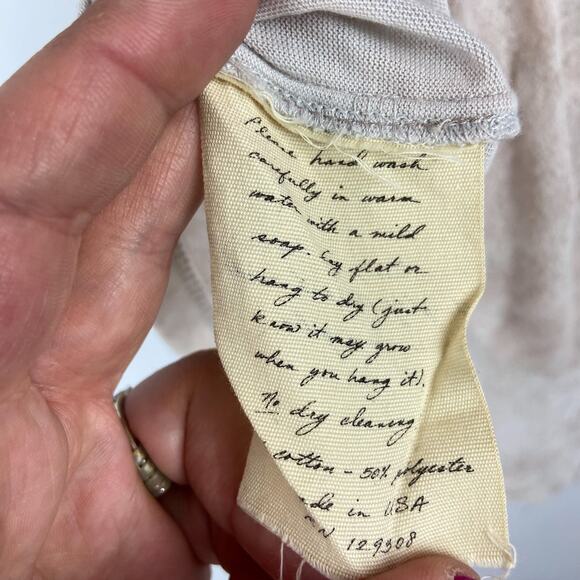 Please hand wash
carefully in warm
water with a mild
soap. Lay flat or
hang to dry (just
know it may grow
when you hang it).
No dry cleaning
cotton - 50% polyester
made in USA
RN 129908